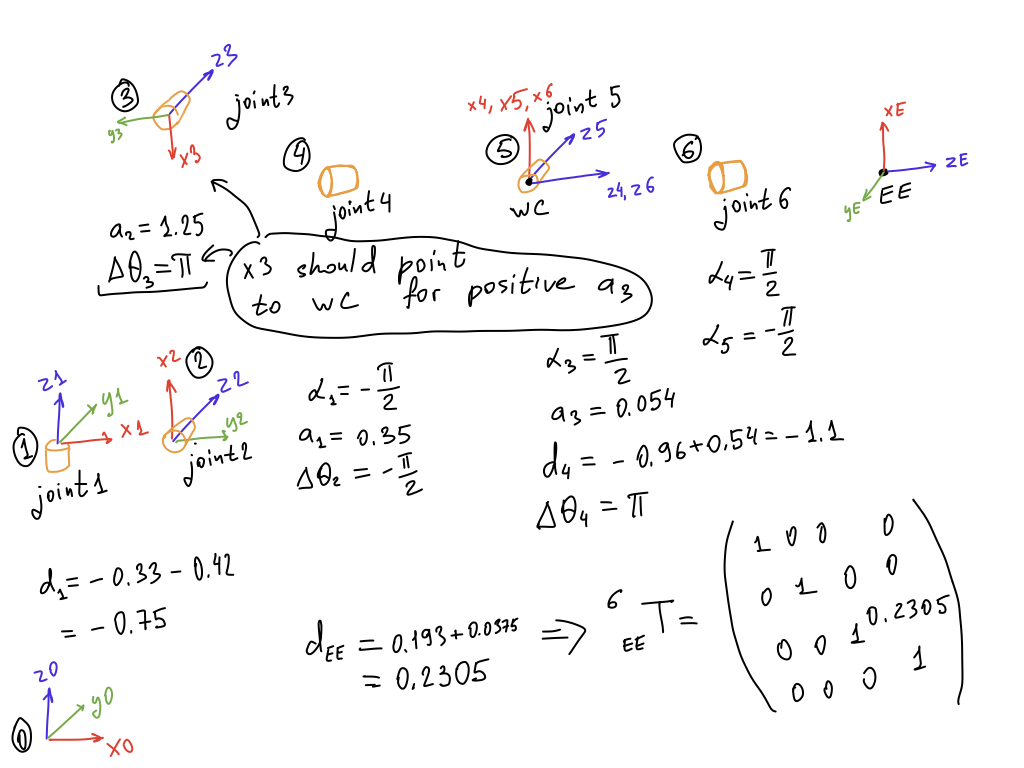 z3
③
joint3
y3
x3
④
joint4
x4, x5, x6
joint 5
⑤
z5
z4, z6
WC
⑥
joint6
xE
zE
yE
EE
a₂ = 1.25
Δθ₃ = π
x3 should point
to WC for positive a₃
α₄ = π/2
α₅ = -π/2
z1
y1
x1
①
joint1
x2
②
z2
y2
joint2
α₁ = -π/2
a₁ = 0.35
Δθ₂ = -π/2
α₃ = π/2
a₃ = 0.054
d₄ = -0.96+0.54 = -1.1
Δθ₄ = π
d₁ = -0.33 - 0.42
= -0.75
z0
y0
x0
0
d_EE = 0.193+0.0375
= 0.2305
⇒ ⁶_EE T =
1 0 0 0
0 1 0 0
0 0 1 0.2305
0 0 0 1